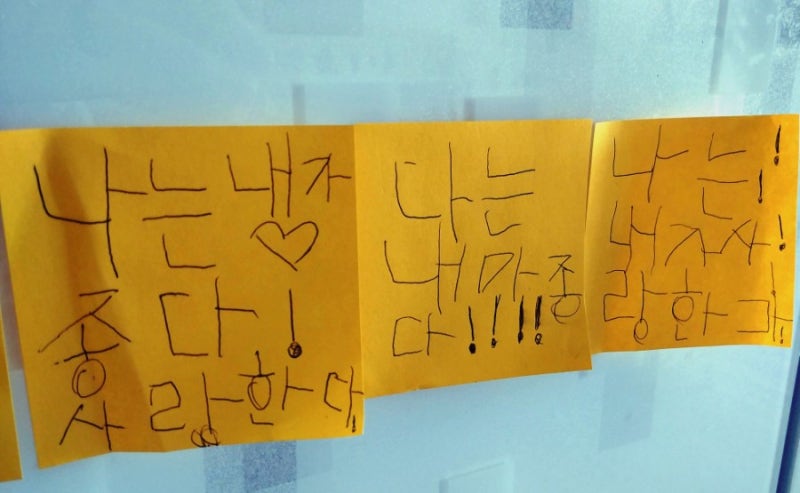 나는 내가
♡
종다!
사랑한다!
다는
내가종
다!!!!
나는!!
내가사!
랑한다!